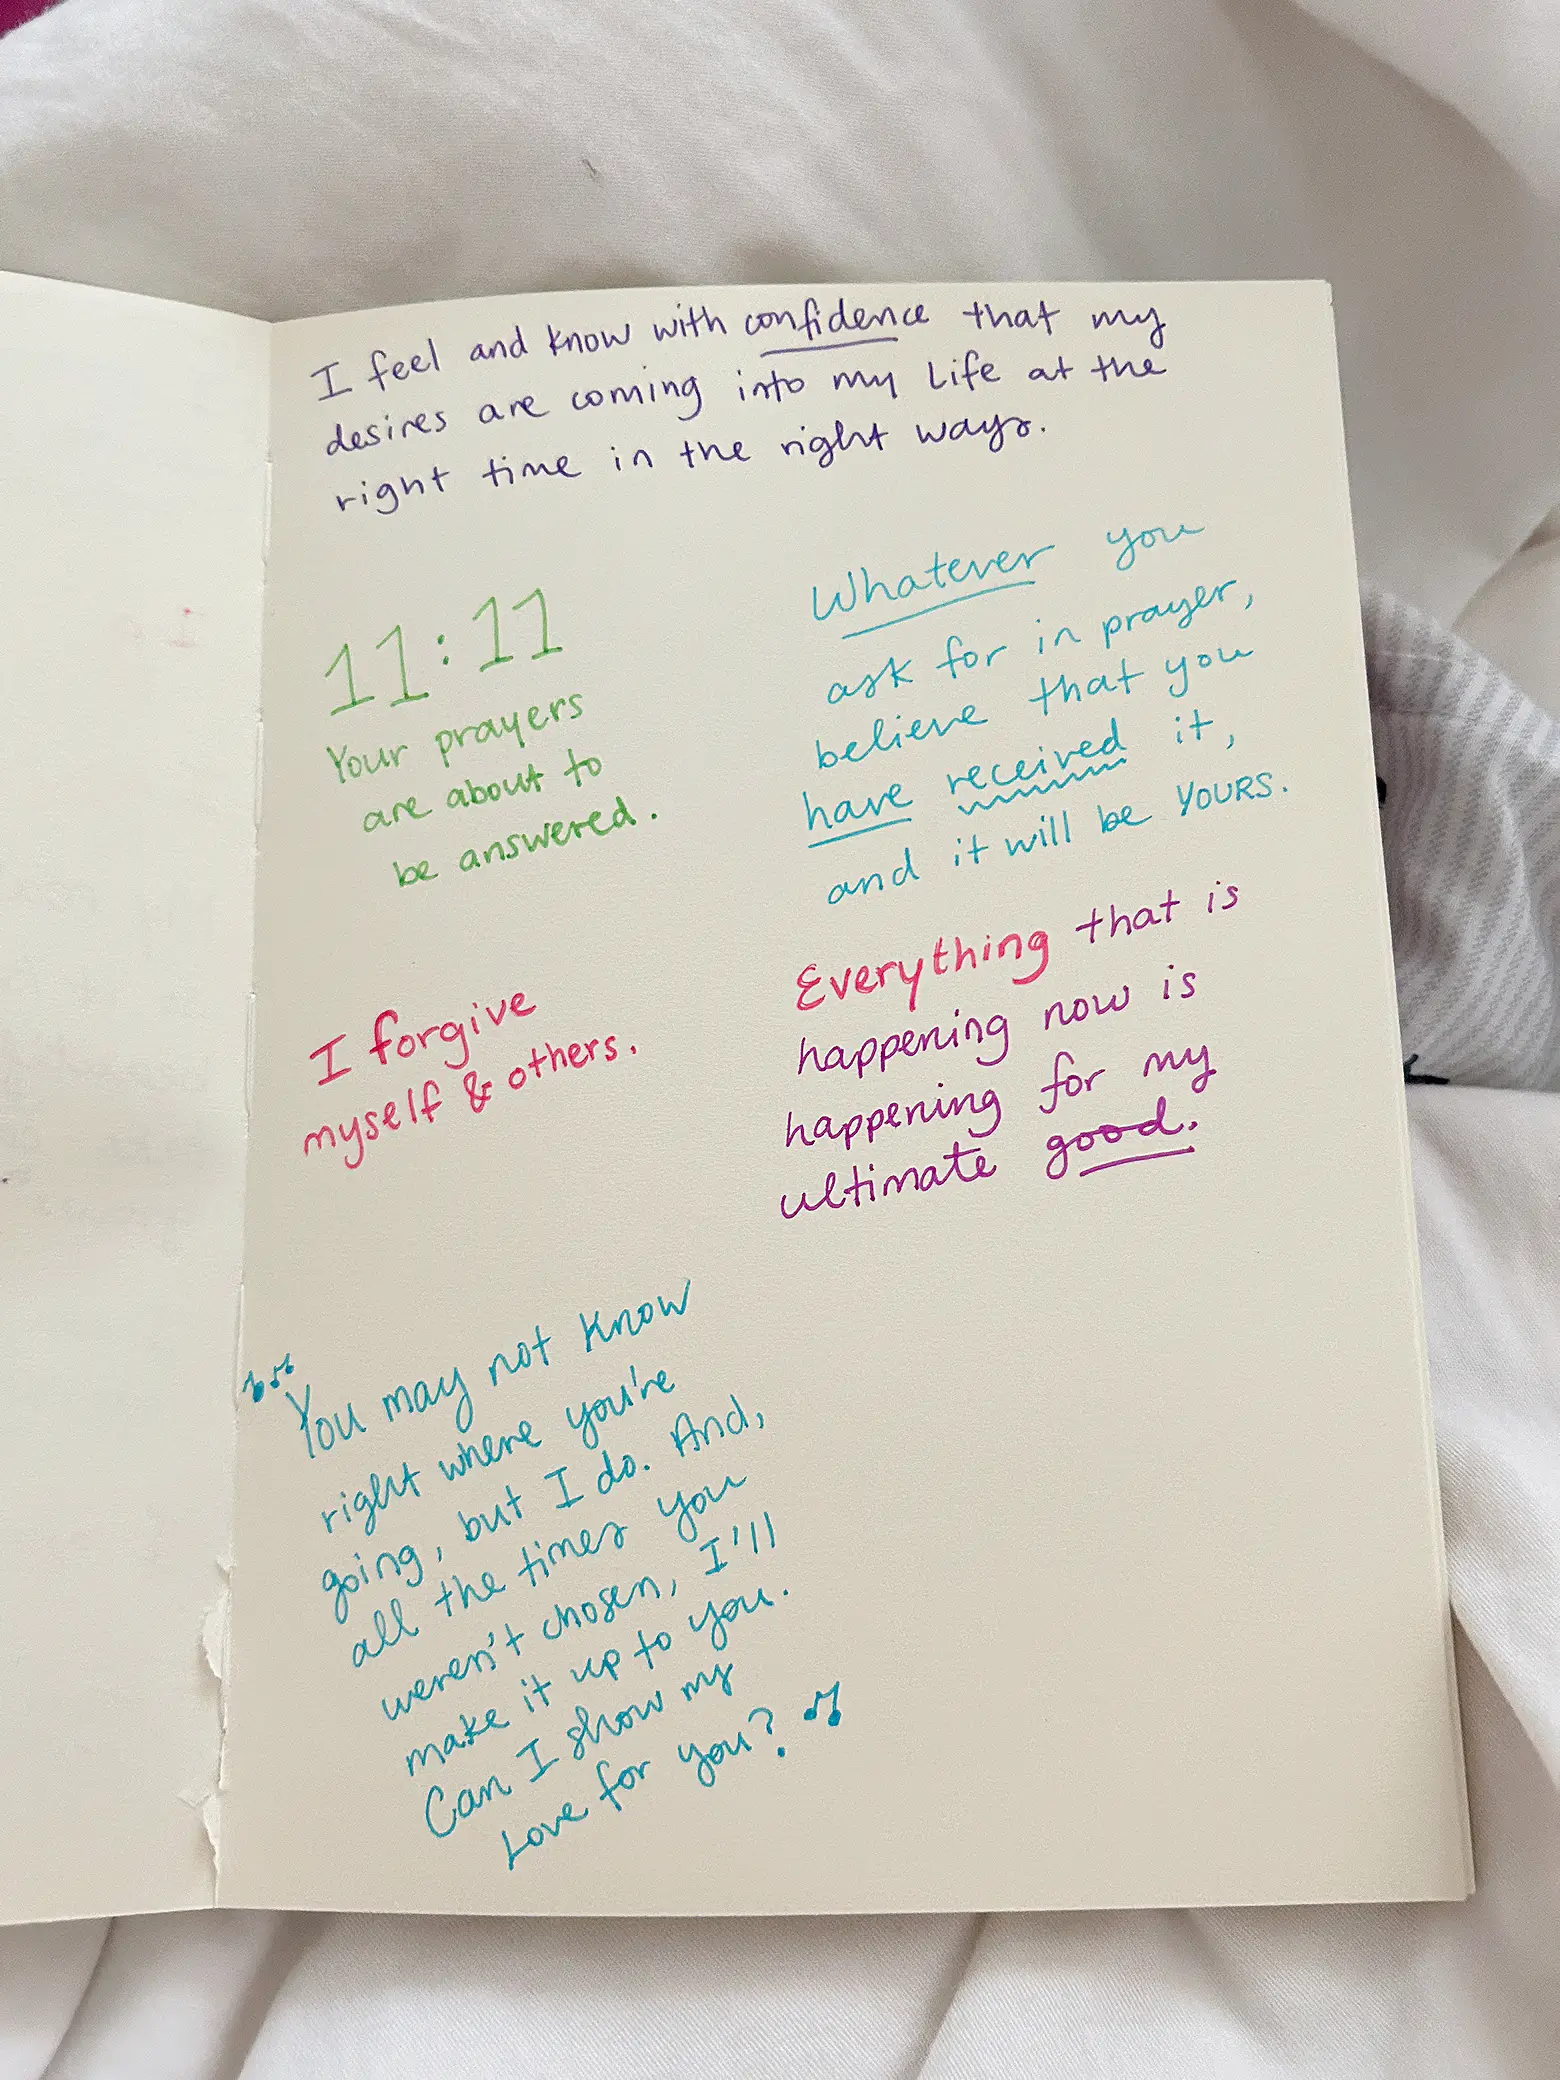 I feel and know with confidence that my
desires are coming into my Life at the
right time in the right ways.
11:11
Your prayers
are about to
be answered.
Whatever you
ask for in prayer,
believe that you
have received it,
and it will be YOURS.
I forgive
myself & others.
Everything that is
happening now is
happening for my
ultimate good.
You may not know
right where you're
going, but I do. And,
all the times you
weren't chosen, I'll
make it up to you.
Can I show my
Love for you?